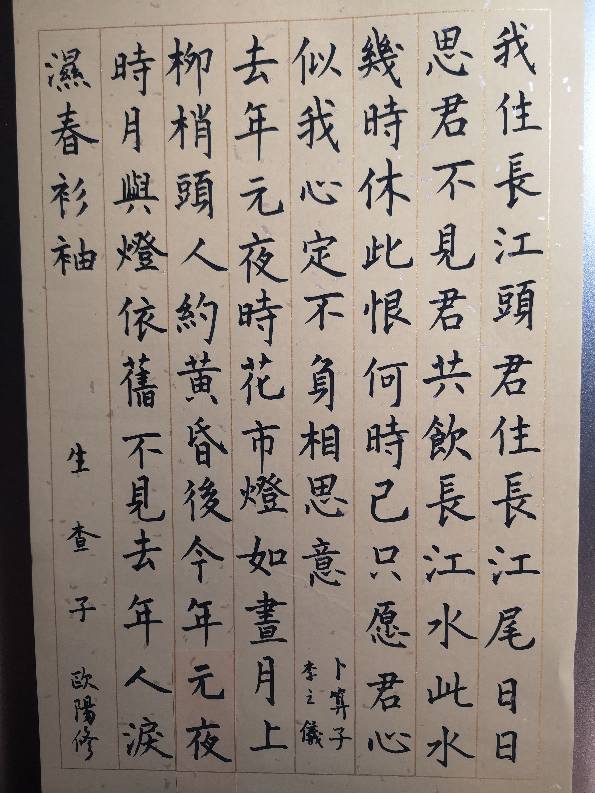 我住長江頭君住長江尾日日
思君不見君共飲長江水此水
幾時休此恨何時已只愿君心
似我心定不負相思意
卜算子
李之儀
去年元夜時花市燈如晝月上
柳梢頭人約黃昏後今年元夜
時月與燈依舊不見去年人淚
濕春衫袖
生查子 歐陽修